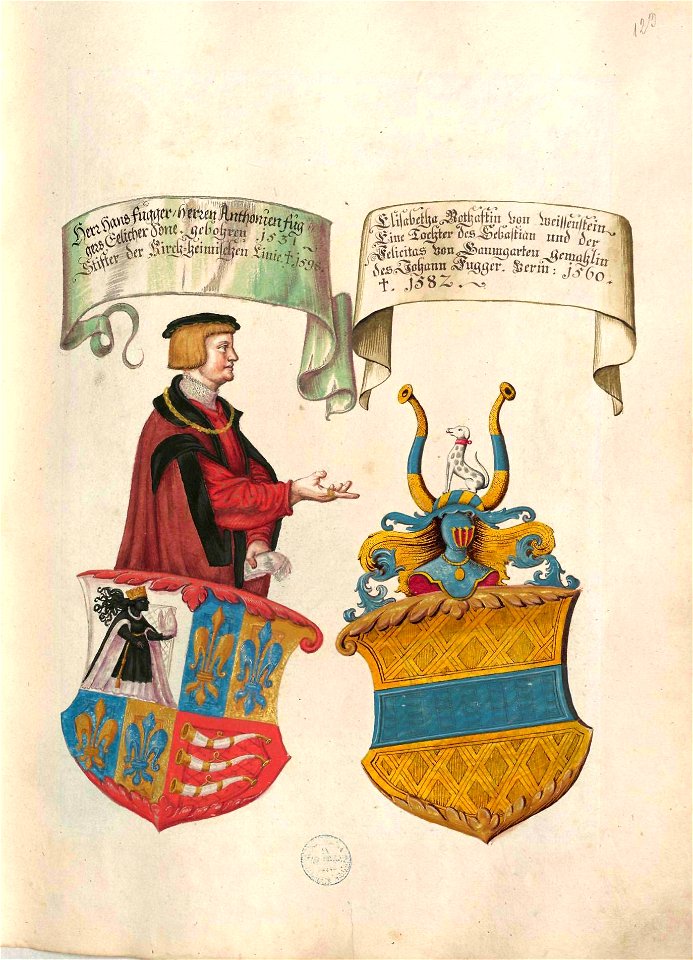 123
Herr Hans Fugger / Herren Anthonien Fug
gers Eelicher Sone . gebohren . 1531 .
Stifter der Kirch-heimischen Linie. † 1598.
Elisabetha Nothaftin von Weissenstein
Eine Tochter des Sebastian und der
Felicitas von Baumgarten gemahlin
des Johann Fugger. Verm: 1560.
†. 1582.